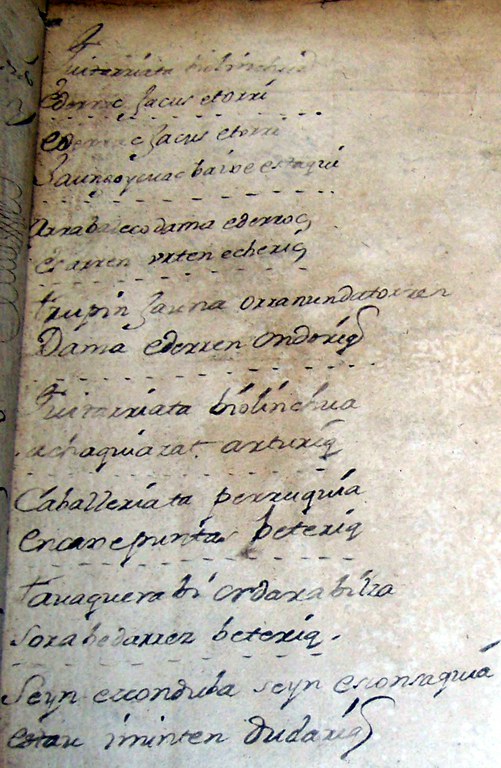 Guitarriata biolinchua
ederrac jacus etorri
ederrac jacus etorri
Jaungoycuac baioe estaqui
Arrabaleco dama ederroc
ezarren urten echeriq
trupin jauna orranundatorren
Dama ederren ondoriq
Guitarriata biolinchua
achaquiarat arturiq
Caballeriata perruquia
encanepuntas beteriq
tauaquera bi ordarabilza
sorabedarrez beteriq.
Seyn esconduba seyn esonsaquia
estau iminten dudariq